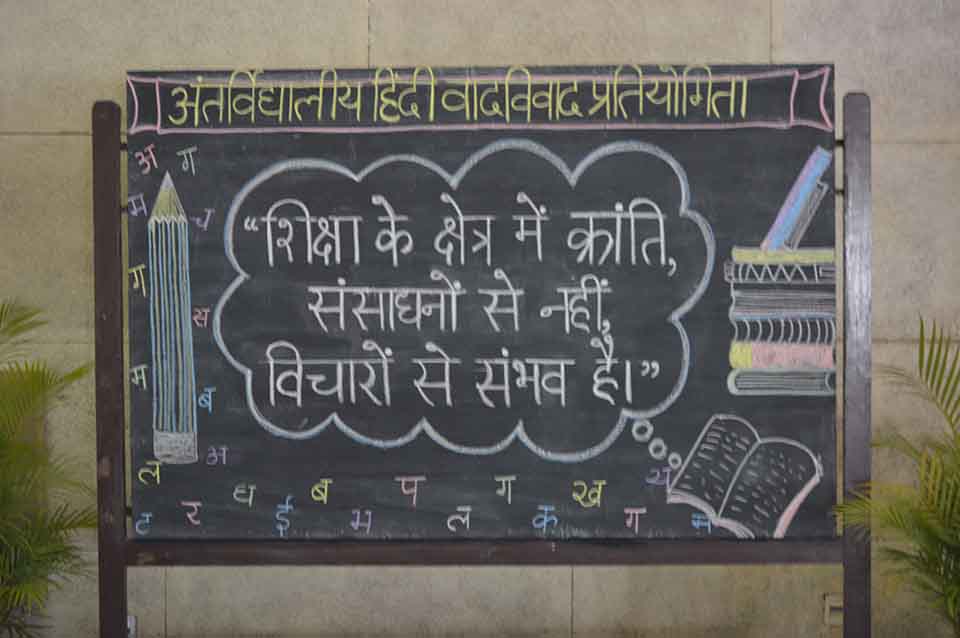 अंतर्विद्यालीय हिंदी वादविवाद प्रतियोगिता
"शिक्षा के क्षेत्र में क्रांति,
संसाधनों से नहीं,
विचारों से संभव है।"
अ ग
म च
ग
स
म
ब
ल अ
ट र ध ई ब म प ल ग क ख ग य म